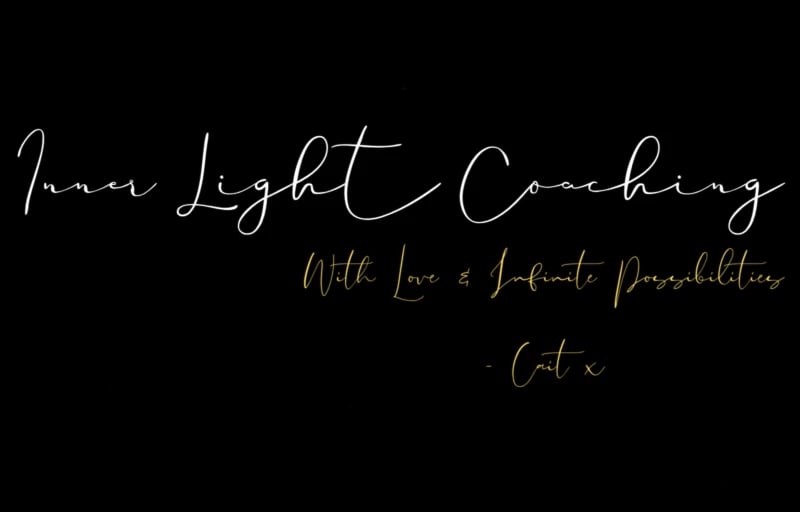 Inner Light Coaching
With Love & Infinite Possibilities
- Cait x